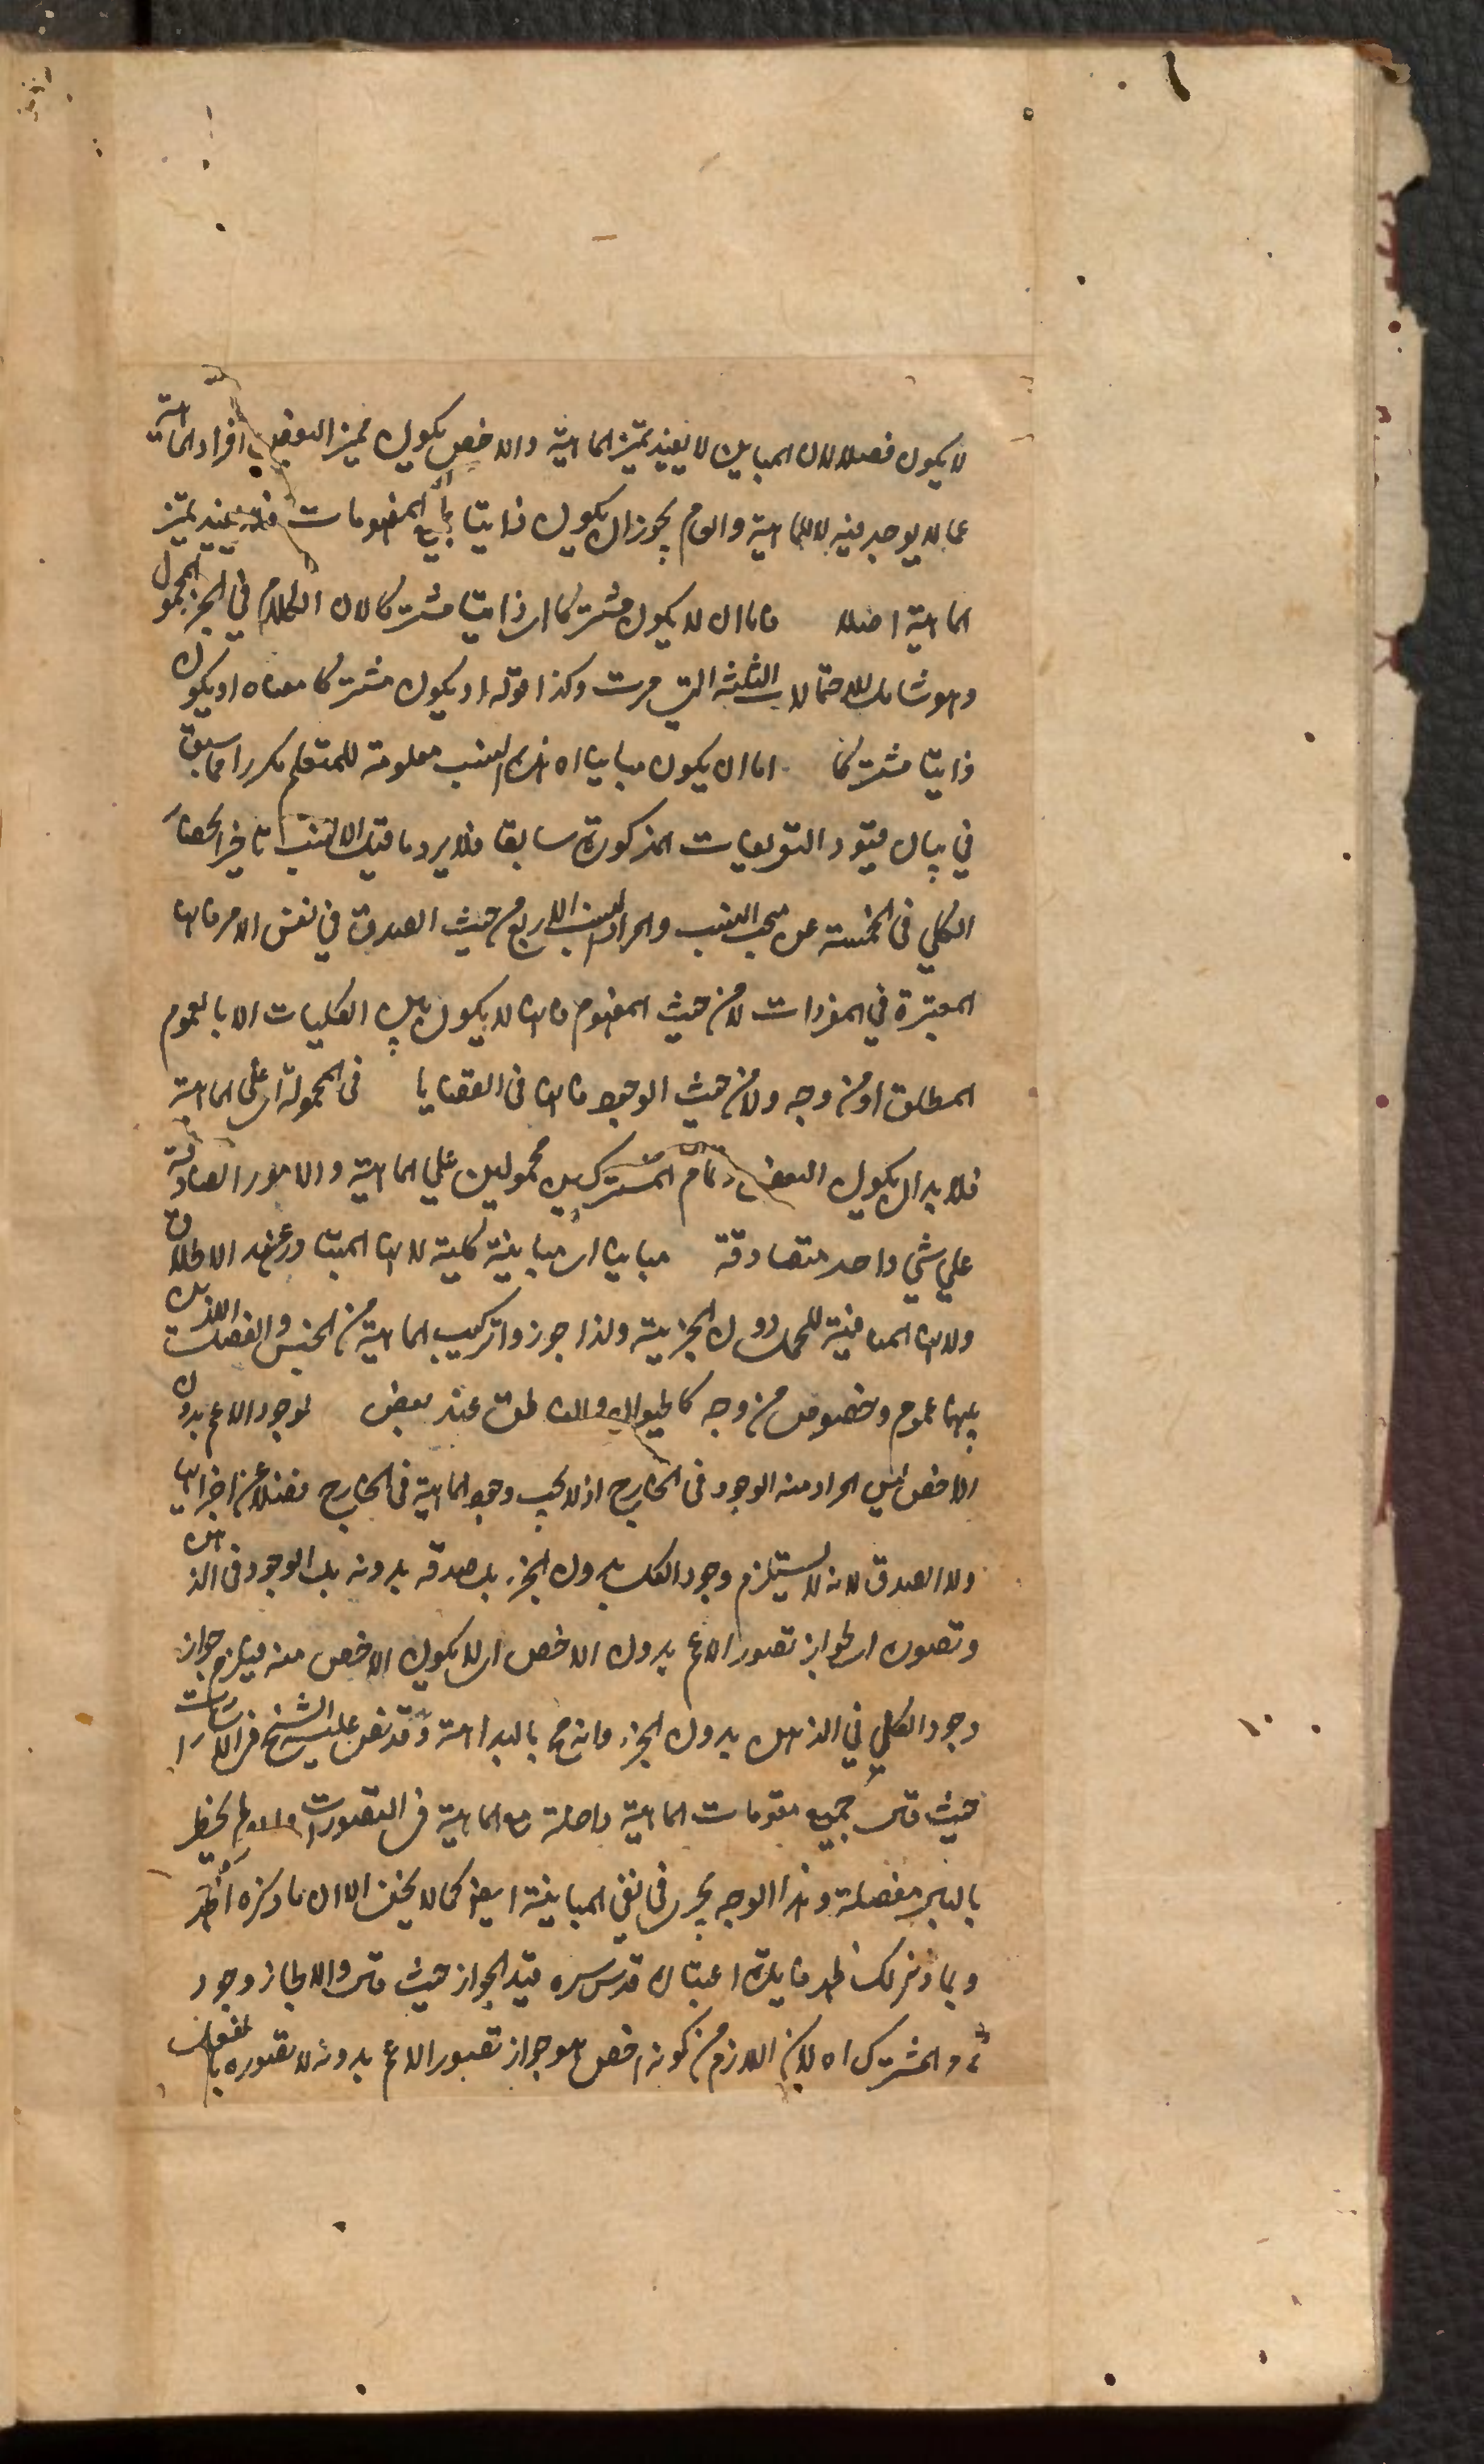 لا يكون فصلا لان المباين لا يفيد تميز الماهية والاخص يكون مميز البعض افراد الماهية
عما لا يوجد فيه لا للماهية والعام يجوز ان يكون ذاتيا لجميع المفهومات فلا يفيد تميز
الماهية اصلا فاما ان لا يكون مشتركا اي ذاتيا مشتركا لان الكلام في الجزء المحمول
وهو شامل للاحتمالات الثلثة التي مرت وكذا قوله او يكون مشتركا معناه او يكون
ذاتيا مشتركا اما ان يكون مباينا اه هذه النسب معلومة للمتعلم مكررا مما سبق
في بيان قيود التعريفات المذكورة سابقا فلا يرد ما قيل الانسب تاخير انحصار
الكلي في الخمسة عن مبحث النسب والمراد النسب الاربع من حيث الصدق في نفس الامر فانها
المعتبرة في المفردات لا من حيث المفهوم فانها لا يكون بين الكليات الا بالعموم
المطلق او من وجه ولا من حيث الوجود فانها في القضايا في المحمولة اي على الماهية
فلا بد ان يكون البعض وتمام المشترك محمولين على الماهية والامور الصادقة
على شيء واحد متصادقة مباينا اي مباينة كلية لانها المتبادر عند الاطلاق
ولانها المنافية للحمل دون الجزئية ولذا جوزوا تركيب الماهية من الجنس والفصل اللذين
بينهما عموم وخصوص من وجه كالحيوان والناطق عند بعض لوجود الاعم بدون
الاخص ليس المراد منه الوجود في الخارج اذ لا يجب وجود الماهية في الخارج فضلا عن اجزائها
ولا الصدق لانه لا يستلزم وجود الكل بدون الجزء بل صدقه بدونه بل الوجود في الذهن
وتصوره اي لجواز تصور الاعم بدون الاخص اي لا يكون الاخص منه فيلزم جواز
وجود الكلي في الذهن بدون الجزء فانه مح بالبداهة وقد نص عليه الشيخ في الاشارات
حيث قال جميع مقومات الماهية داخلة مع الماهية في التصورات وان لم يخطر
بالبال مفصلة وهذا الوجه يجري في نفي المباينة ايضا كما لا يخفى الا ان ما ذكره اظهر
وبما ذكرنا لك ظهر فايدة اعتبار قدس سره قيد الجواز حيث قال والا لجاز وجود
تمام المشترك اه لان اللازم من كونه اخص هو جواز تصور الاعم بدونه لا تصوره بالفعل